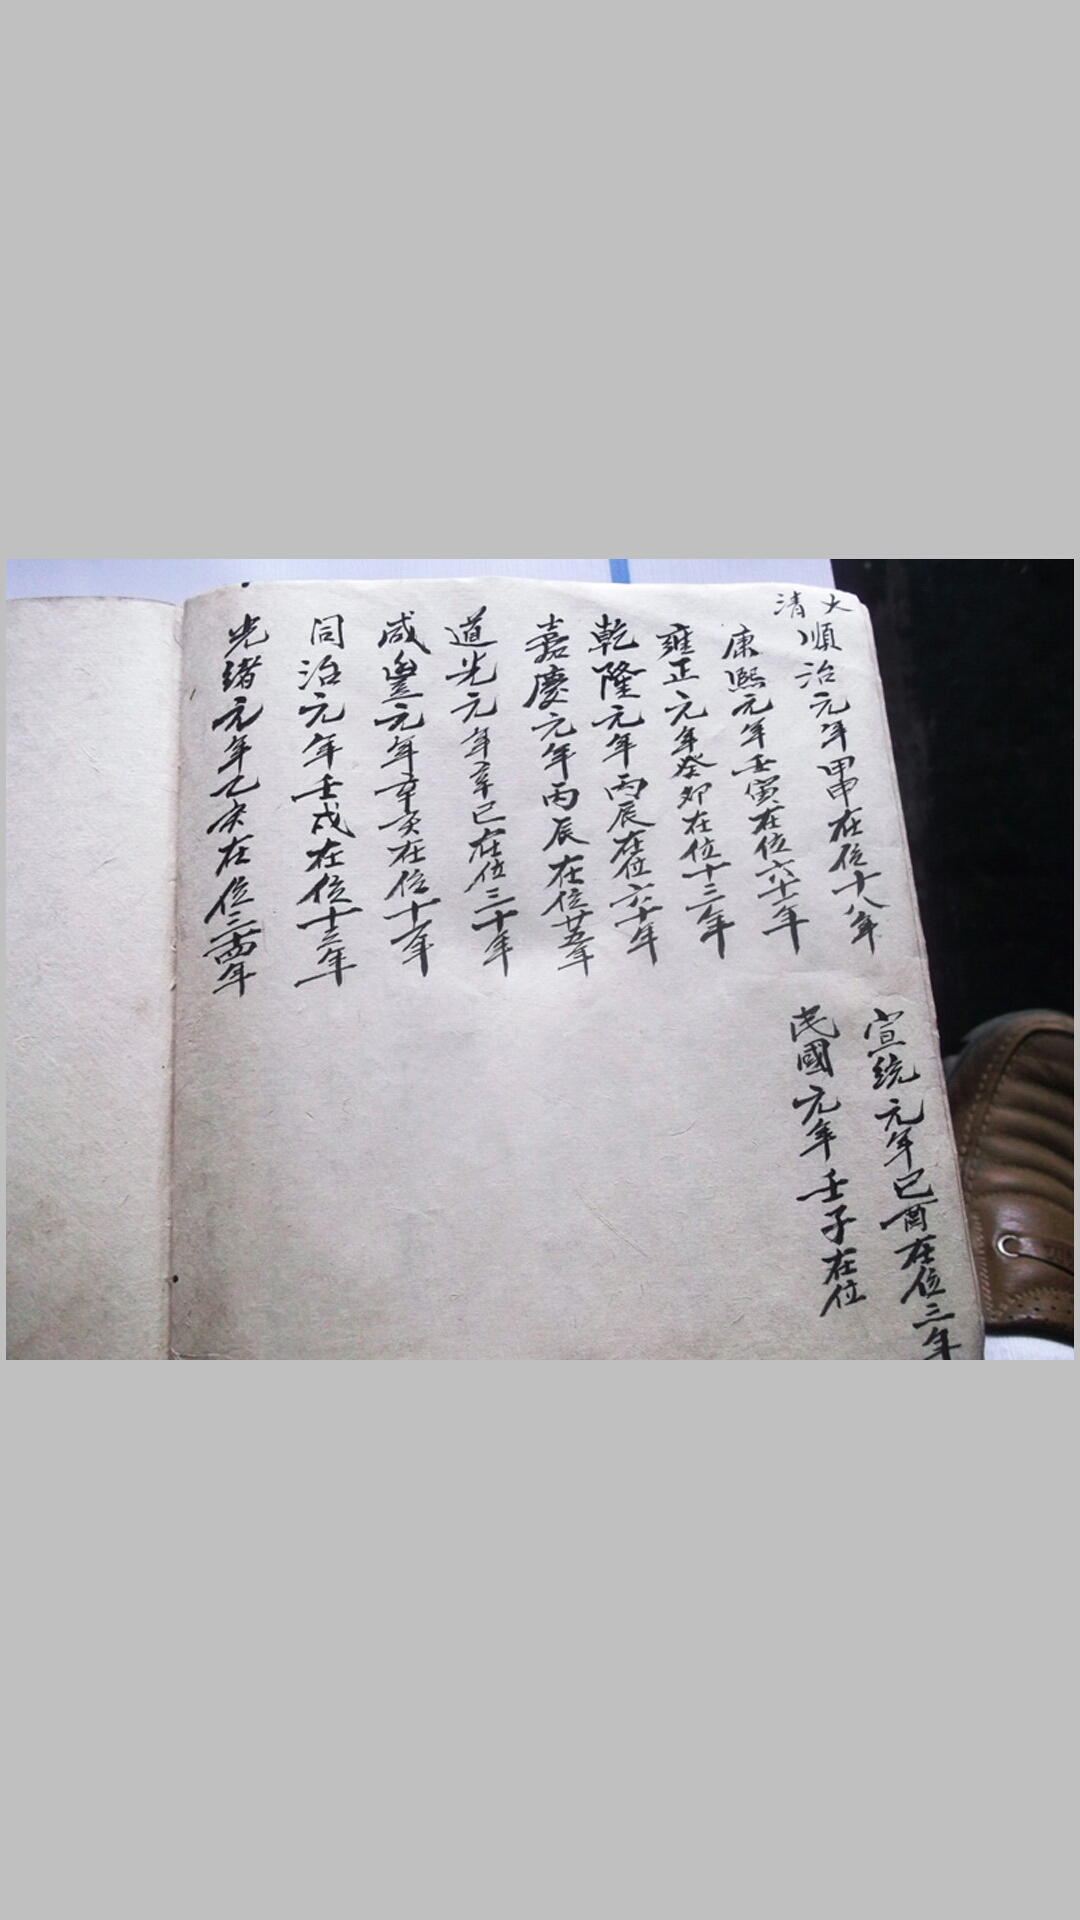 大清
順治元年甲申在位十八年
康熙元年壬寅在位六十一年
雍正元年癸卯在位十三年
乾隆元年丙辰在位六十年
嘉慶元年丙辰在位廿五年
道光元年辛巳在位三十年
咸豐元年辛亥在位十一年
同治元年壬戌在位十三年
光緒元年乙亥在位三十四年
宣統元年已酉在位三年
民國元年壬子在位